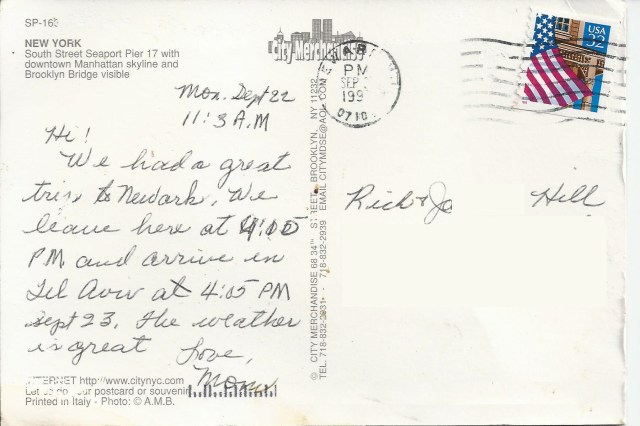 SP-16
NEW YORK
South Street Seaport Pier 17 with
downtown Manhattan skyline and
Brooklyn Bridge visible
City Merchandise
PM
SEP
199
0710
USA
32
Mon. Sept 22
11:3 A.M
Hi!
We had a great
trip to Newark. We
leave here at 4:05
PM and arrive in
Tel Aviv at 4:05 PM
Sept 23. The weather
is great
Love,
Mom
Rick & Jo Hill
© CITY MERCHANDISE 68 34TH STREET, BROOKLYN, NY 11232
TEL. 718-832-2931 - 718-832-2939 EMAIL CITYMDSE@AOL.COM
INTERNET http://www.citynyc.com
Let us do your postcard or souvenir
Printed in Italy - Photo: © A.M.B.